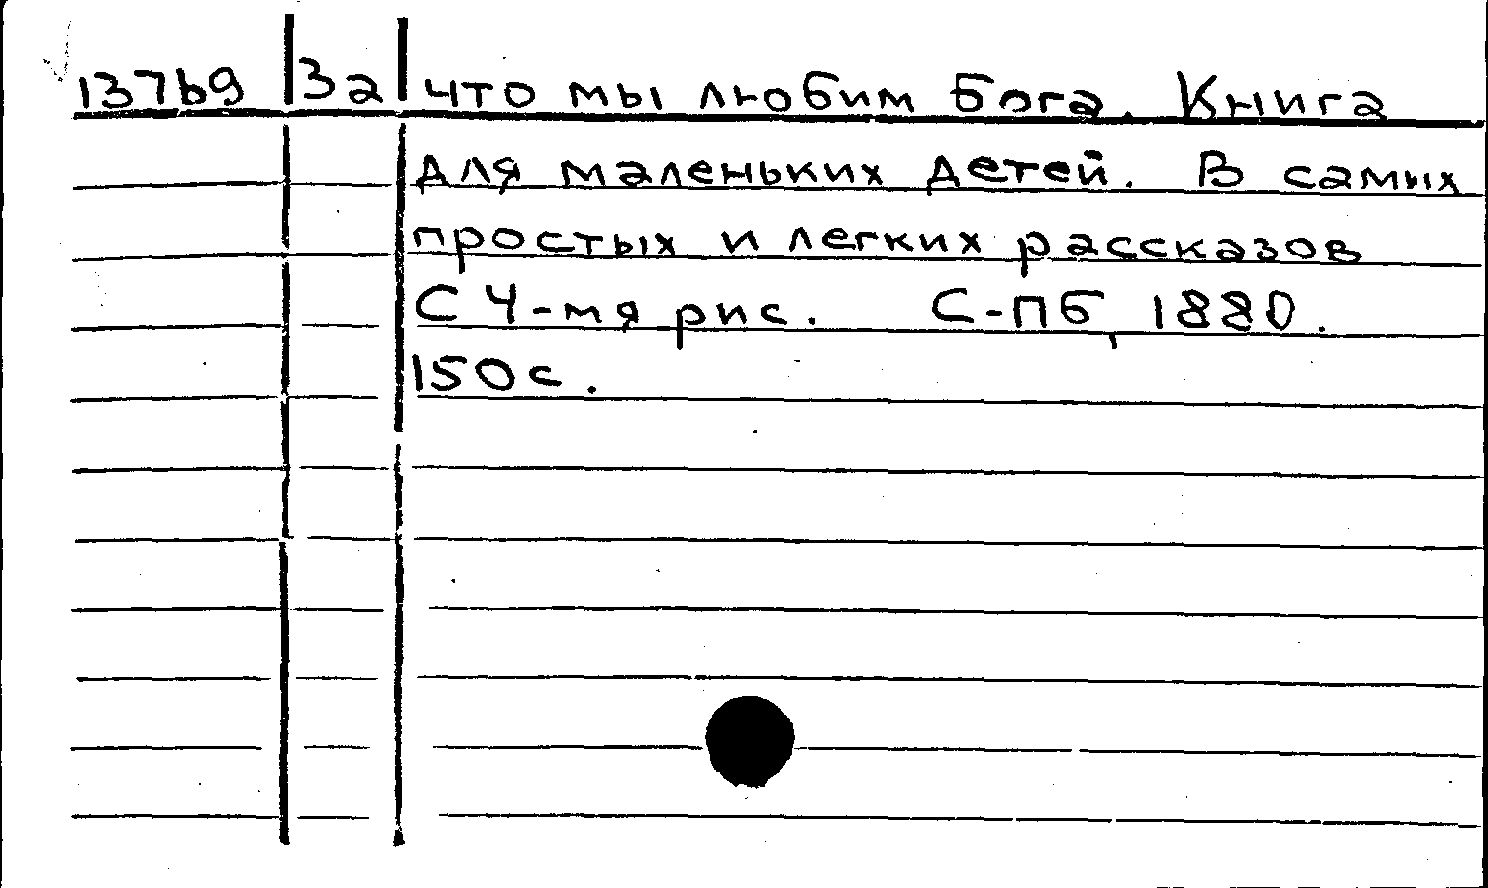 13769 За что мы любим Бога. Книга
для маленьких детей. В самых
простых и легких рассказов
С 4-мя рис. С-ПБ, 1880.
150 с.